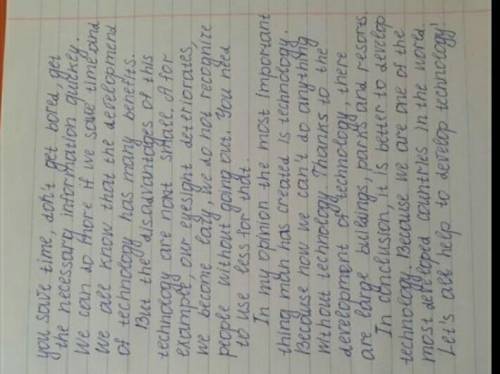 you save time, don't get bored, get
the necessary information quickly.
We can do more if we save time and
we all know that the development
of technology has many benefits.
But the disadvantages of this
technology are nont small. A for
example our eyesight deteriorates,
we become lazy, we do not recognize
people without going out. You need
to use less for that.
In my opinion the most important
thing man has created is technology.
Because now we can't do anything
without technology. Thanks to the
development of technology, there
are large buildings, parks and resorts.
In conclusion, it is better to develop
technology. Because we are one of the
most developed countries in the world.
Let's all help to develop technology!